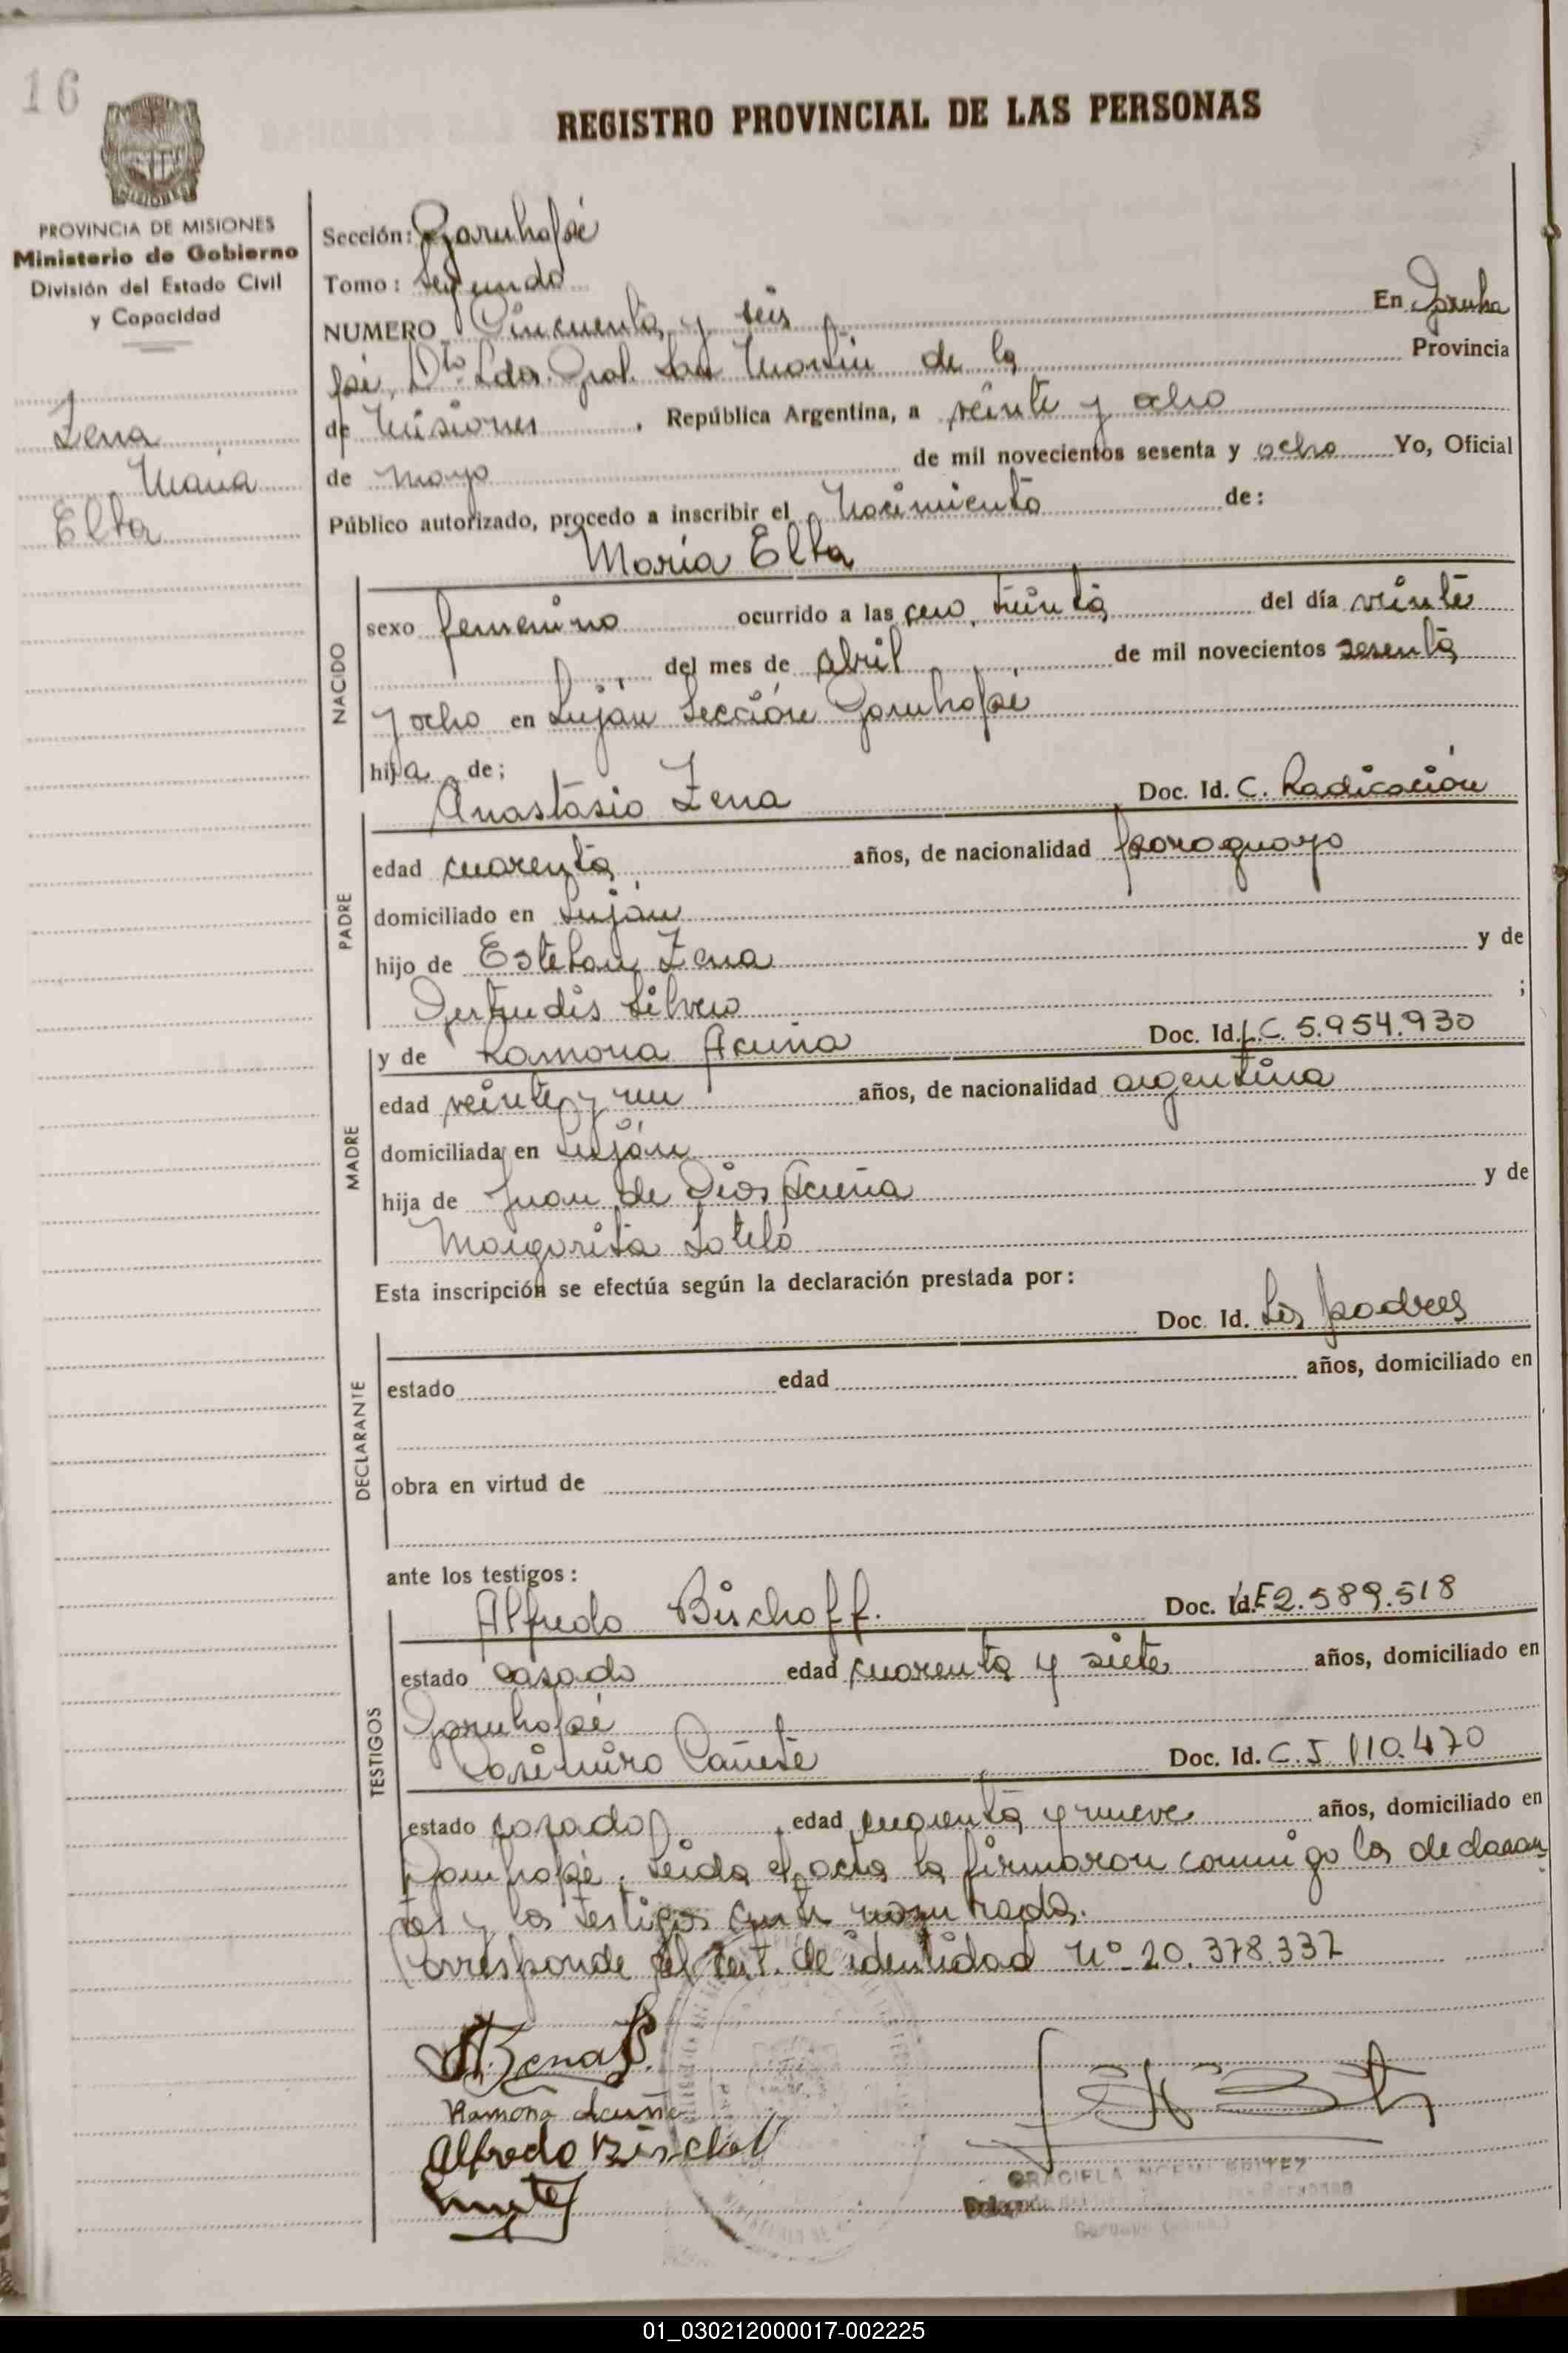 16
REGISTRO PROVINCIAL DE LAS PERSONAS
MISIONES
PROVINCIA DE MISIONES
Ministerio de Gobierno
División del Estado Civil
y Capacidad
Zena
María
Elba
Sección: Garuhapé
Tomo: Segundo
NUMERO Cincuenta y seis En Garuha
pé, Dto. Ldor. Gral. San Martín de la Provincia
de Misiones, República Argentina, a veinte y ocho
de mayo de mil novecientos sesenta y ocho Yo, Oficial
Público autorizado, procedo a inscribir el Nacimiento de:
María Elba
NACIDO
sexo femenino ocurrido a las cero, treinta del día veinte
del mes de abril de mil novecientos sesenta
y ocho en Luján Sección Garuhapé
hija de;
Anastasio Zena Doc. Id. C. Radicación
PADRE
edad cuarenta años, de nacionalidad paraguayo
domiciliado en Luján
hijo de Esteban Zena y de
Gertrudis Silvero ;
y de Ramona Acuña Doc. Id. L.C. 5.954.930
MADRE
edad veinte y un años, de nacionalidad argentina
domiciliada en Luján
hija de Juan de Dios Acuña y de
Margarita Sotelo
Esta inscripción se efectúa según la declaración prestada por:
Doc. Id. Los padres
DECLARANTE
estado edad años, domiciliado en
obra en virtud de
ante los testigos:
Alfredo Bischoff. Doc. Id. L.E 2.589.518
TESTIGOS
estado casado edad cuarenta y siete años, domiciliado en
Garuhapé
Casimiro Cañete Doc. Id. C.I. 110.470
estado casado edad cuarenta y nueve años, domiciliado en
Garuhapé. Leida el acta la firmaron conmigo los declaran
tes y los testigos nombrados.
Corresponde al Cert. de identidad Nº 20.378.337
A. Zena
Ramona Acuña
Alfredo Bischoff
GRACIELA NOEMI BRITEZ
01_030212000017-002225